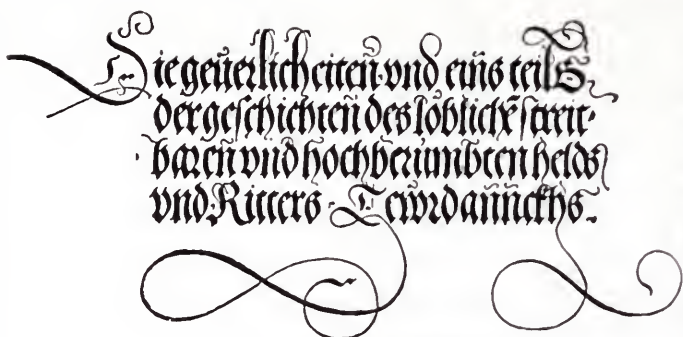 Die geüerlicheiten vnd einſs teils
der geſchichten des loblichen ſtreit-
baren vnd hochberümbten helds
vnd Ritters Tewrdannckhs